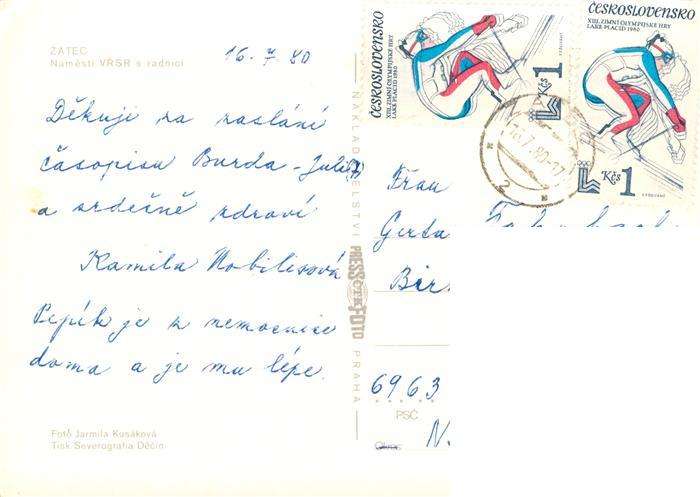 ŽATEC
Náměstí VŘSR s radnicí
16. 7. 80
Děkuji za zaslání
časopisu Burda - Juli (7)
a srdečně zdraví
Kamila Nobilisová
Pepík je z nemocnice
doma a je mu lépe.
Foto Jarmila Kusáková
Tisk Severografia Děčín
NAKLADATELSTVÍ PRESSFOTO PRAHA
ČTK
ČESKOSLOVENSKO
XIII. ZIMNÍ OLYMPIJSKÉ HRY
LAKE PLACID 1980
Kčs 1
ČESKOSLOVENSKO
XIII. ZIMNÍ OLYMPIJSKÉ HRY
LAKE PLACID 1980
Kčs 1
2
Frau
Gerta
Bir
69.6.3
PSČ
N.
Okres